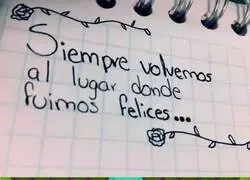 Siempre volvemos
al lugar donde
fuimos felices...